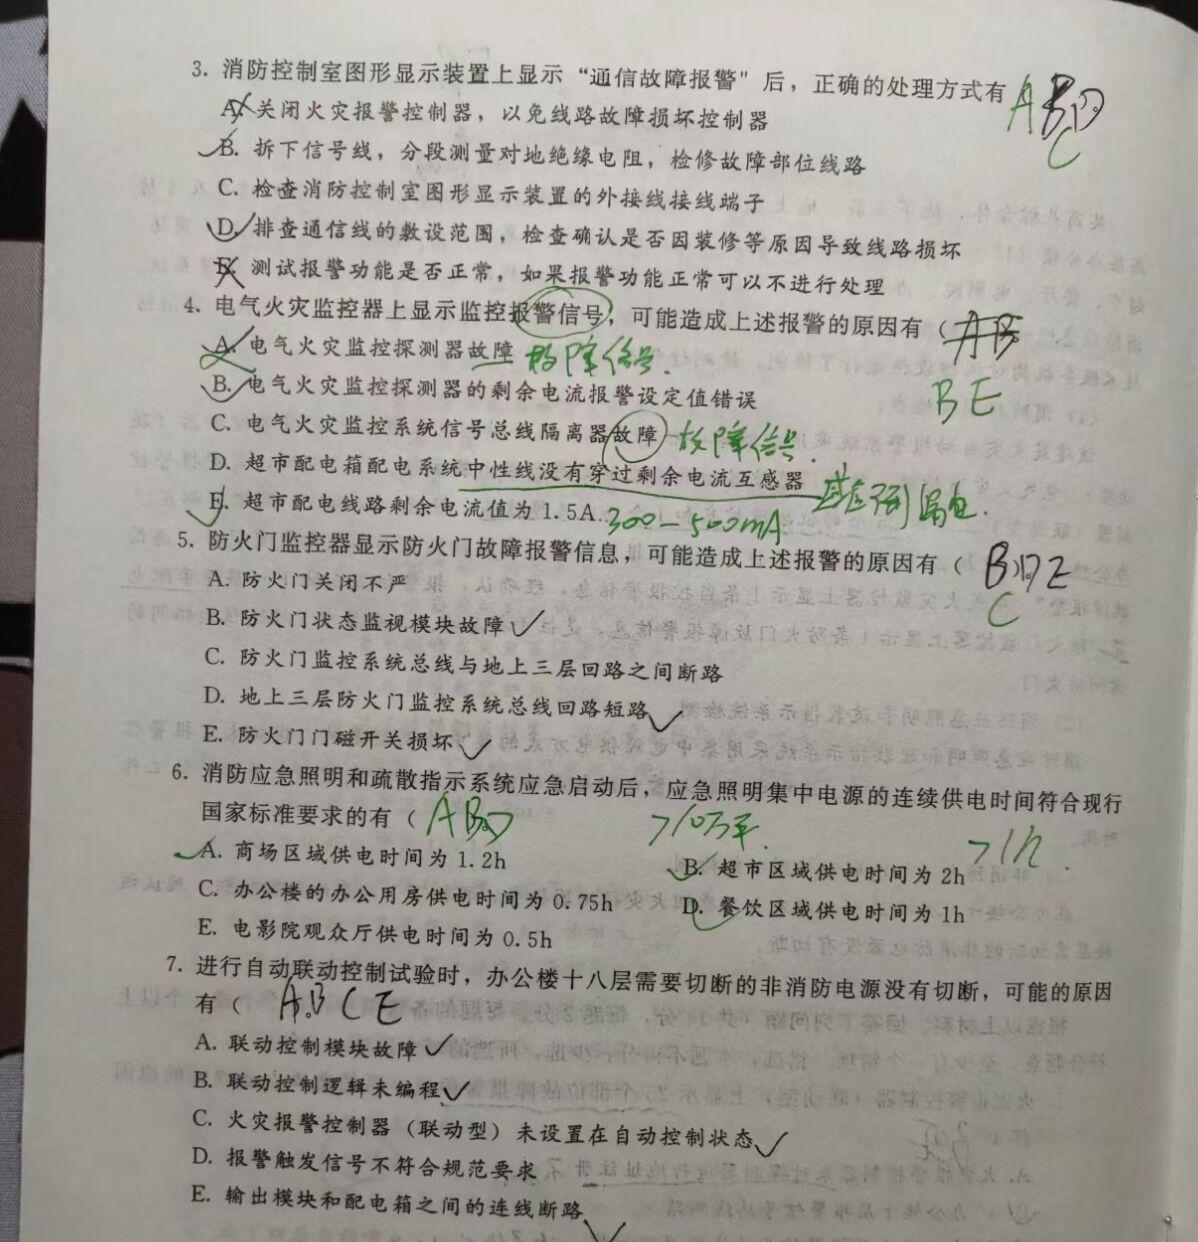 3. 消防控制室图形显示装置上显示“通信故障报警"后，正确的处理方式有 ABD
C
A. 关闭火灾报警控制器，以免线路故障损坏控制器
B. 拆下信号线，分段测量对地绝缘电阻，检修故障部位线路
C. 检查消防控制室图形显示装置的外接线接线端子
D. 排查通信线的敷设范围，检查确认是否因装修等原因导致线路损坏
E. 测试报警功能是否正常，如果报警功能正常可以不进行处理
4. 电气火灾监控器上显示监控报警信号，可能造成上述报警的原因有（ AB
A. 电气火灾监控探测器故障 故障信号.
B. 电气火灾监控探测器的剩余电流报警设定值错误 BE
C. 电气火灾监控系统信号总线隔离器故障 故障信号.
D. 超市配电箱配电系统中性线没有穿过剩余电流互感器
E. 超市配电线路剩余电流值为 1.5A 300-500mA
5. 防火门监控器显示防火门故障报警信息，可能造成上述报警的原因有（ BDE
C
A. 防火门关闭不严
B. 防火门状态监视模块故障
C. 防火门监控系统总线与地上三层回路之间断路
D. 地上三层防火门监控系统总线回路短路
E. 防火门门磁开关损坏
6. 消防应急照明和疏散指示系统应急启动后，应急照明集中电源的连续供电时间符合现行
国家标准要求的有（ ABD >10万平. >1h
A. 商场区域供电时间为 1.2h
B. 超市区域供电时间为 2h
C. 办公楼的办公用房供电时间为 0.75h
D. 餐饮区域供电时间为 1h
E. 电影院观众厅供电时间为 0.5h
7. 进行自动联动控制试验时，办公楼十八层需要切断的非消防电源没有切断，可能的原因
有（ ABCE
A. 联动控制模块故障
B. 联动控制逻辑未编程
C. 火灾报警控制器（联动型）未设置在自动控制状态
D. 报警触发信号不符合规范要求
E. 输出模块和配电箱之间的连线断路